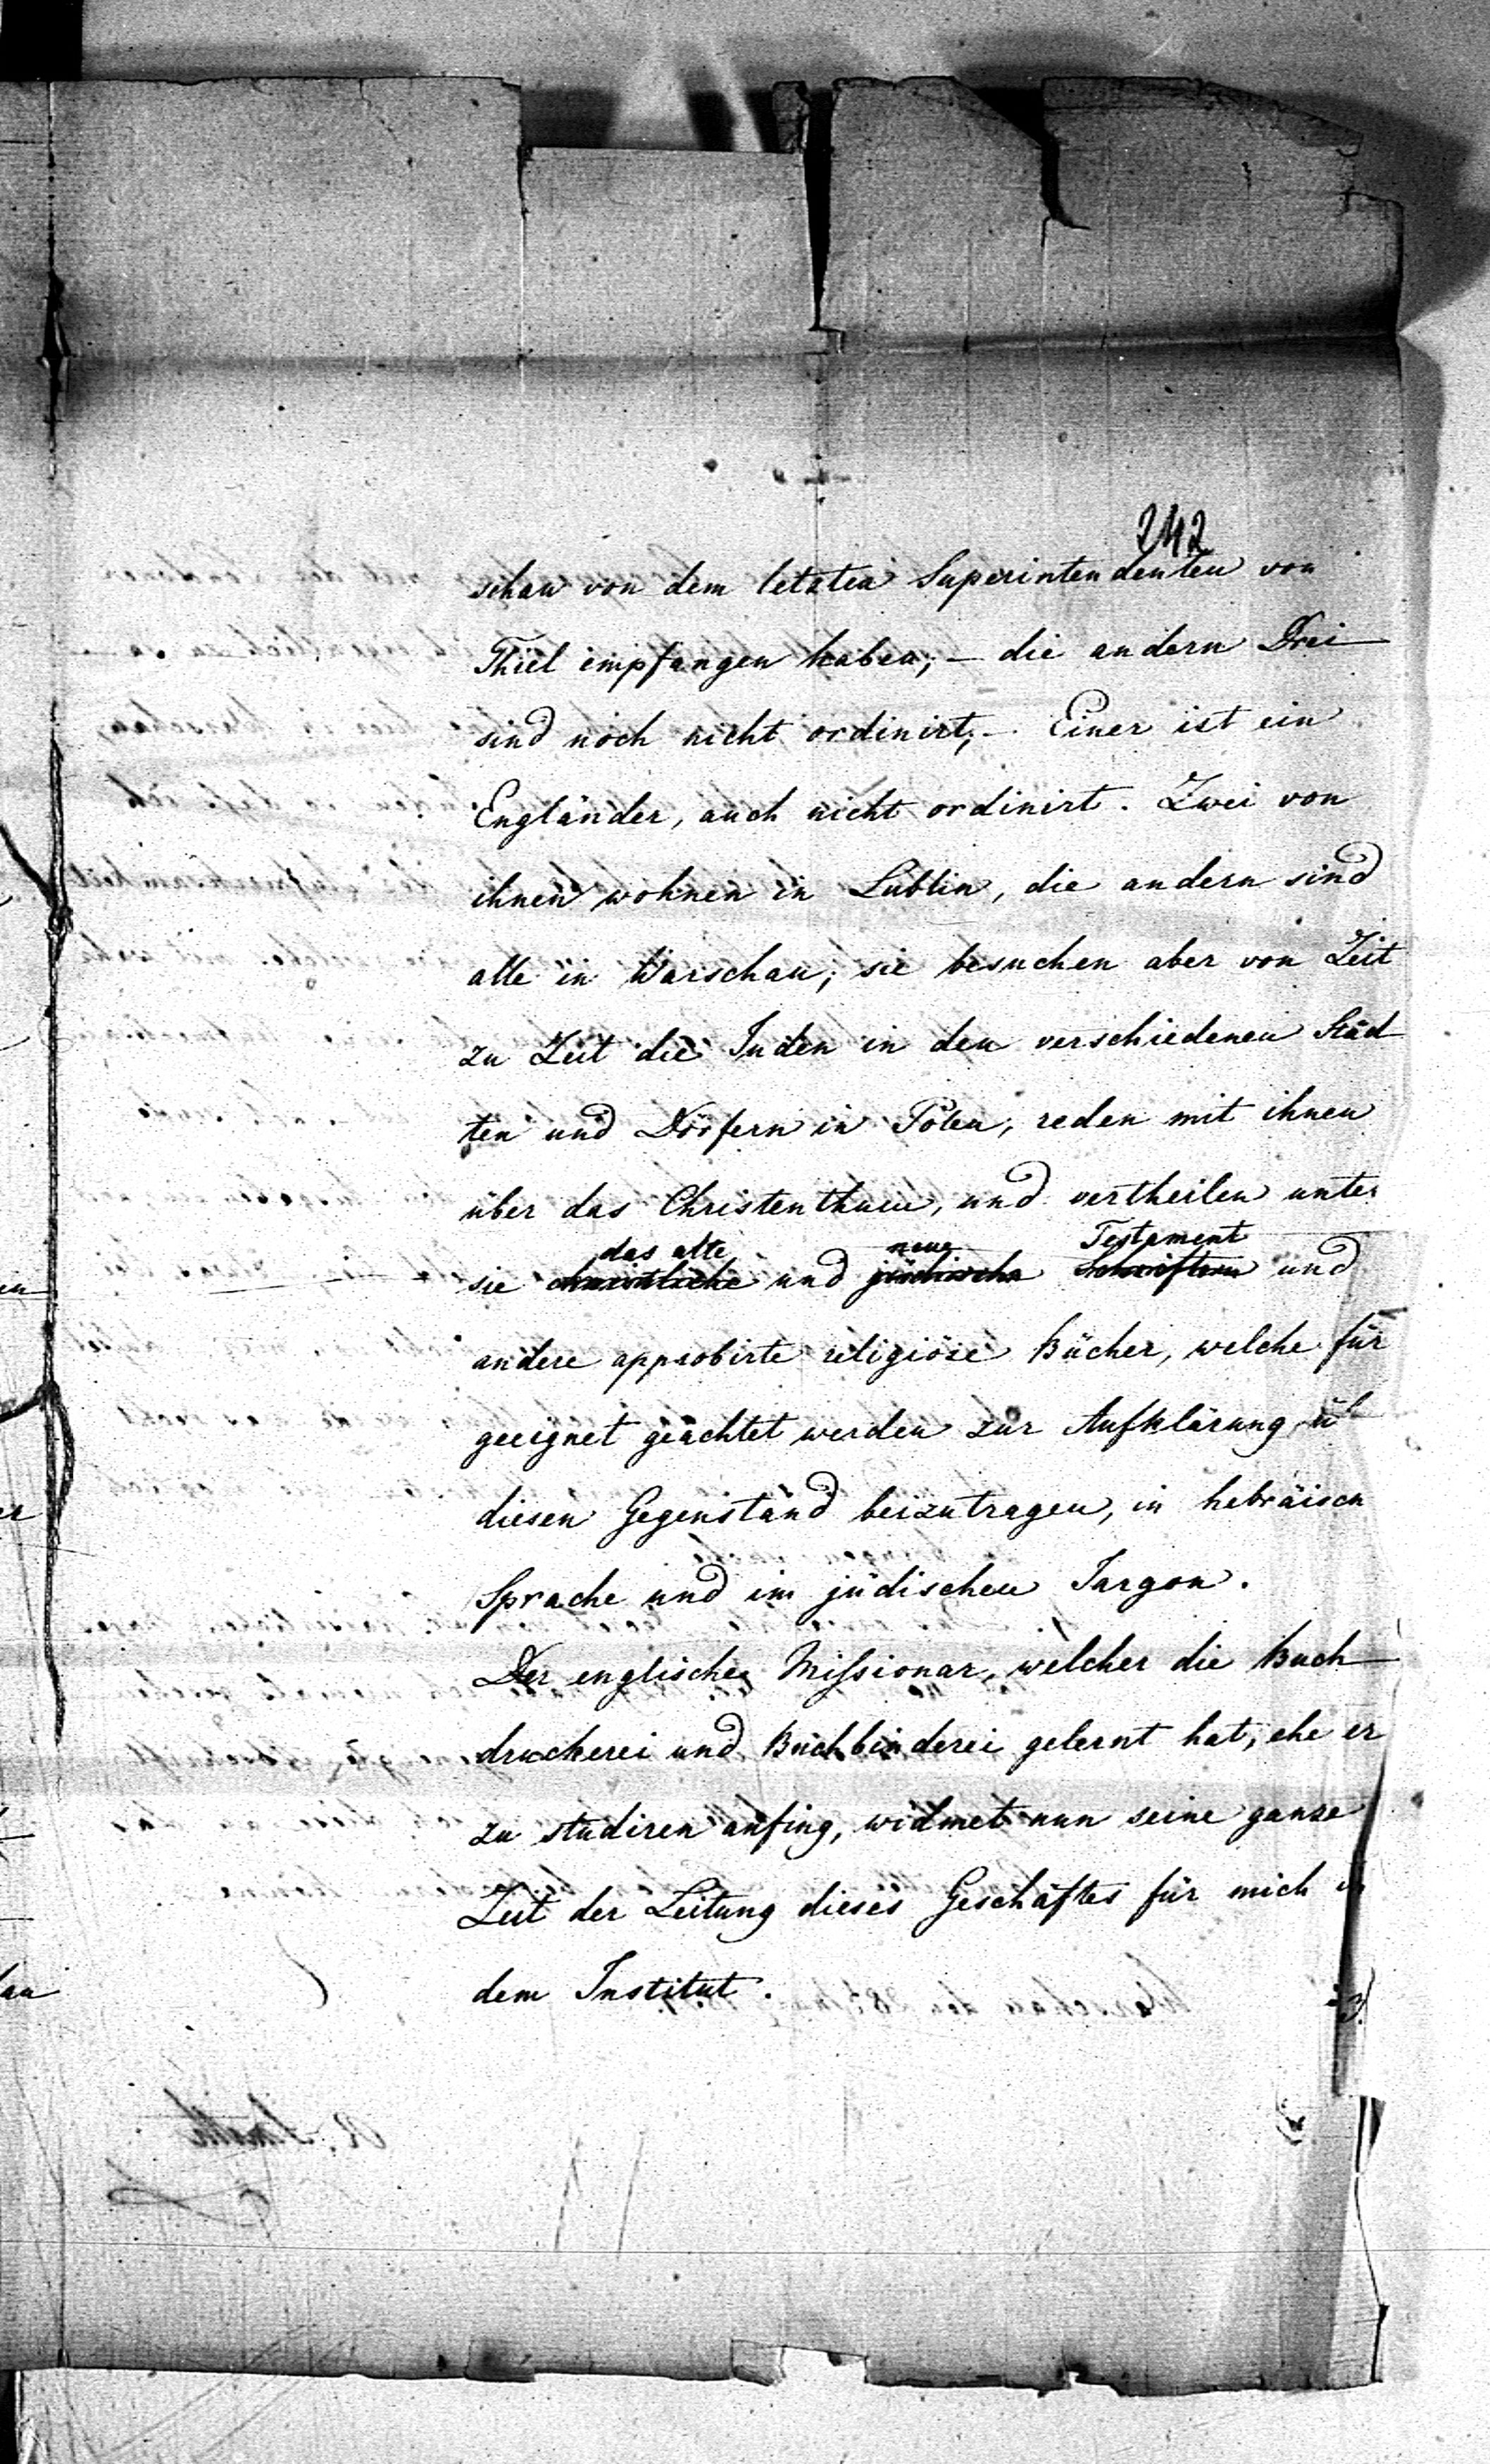 242
schau von dem letzten Superintendenten von
Thiel empfangen haben; – die andern Drei
sind noch nicht ordinirt; – Einer ist ein
Engländer, auch nicht ordinirt. Zwei von
ihnen wohnen in Lublin, die andern sind
alle in Warschau; sie besuchen aber von Zeit
zu Zeit die Juden in den verschiedenen Städ
ten und Dörfern in Polen, reden mit ihnen
über das Christenthum, und vertheilen unter
das alte neue Testament
sie christliche und jüdische Schriften und
andere approbirte religiöse Bücher, welche für
geeignet geachtet werden zur Aufklärung üb
diesen Gegenstand beizutragen, in hebräisch
Sprache und im jüdischen Jargon.
Der englische Missionar, welcher die Buch
druckerei und Buchbinderei gelernt hat, ehe er
zu studiren anfing, widmet nun seine ganze
Zeit der Leitung dieses Geschäftes für mich in
dem Institut.